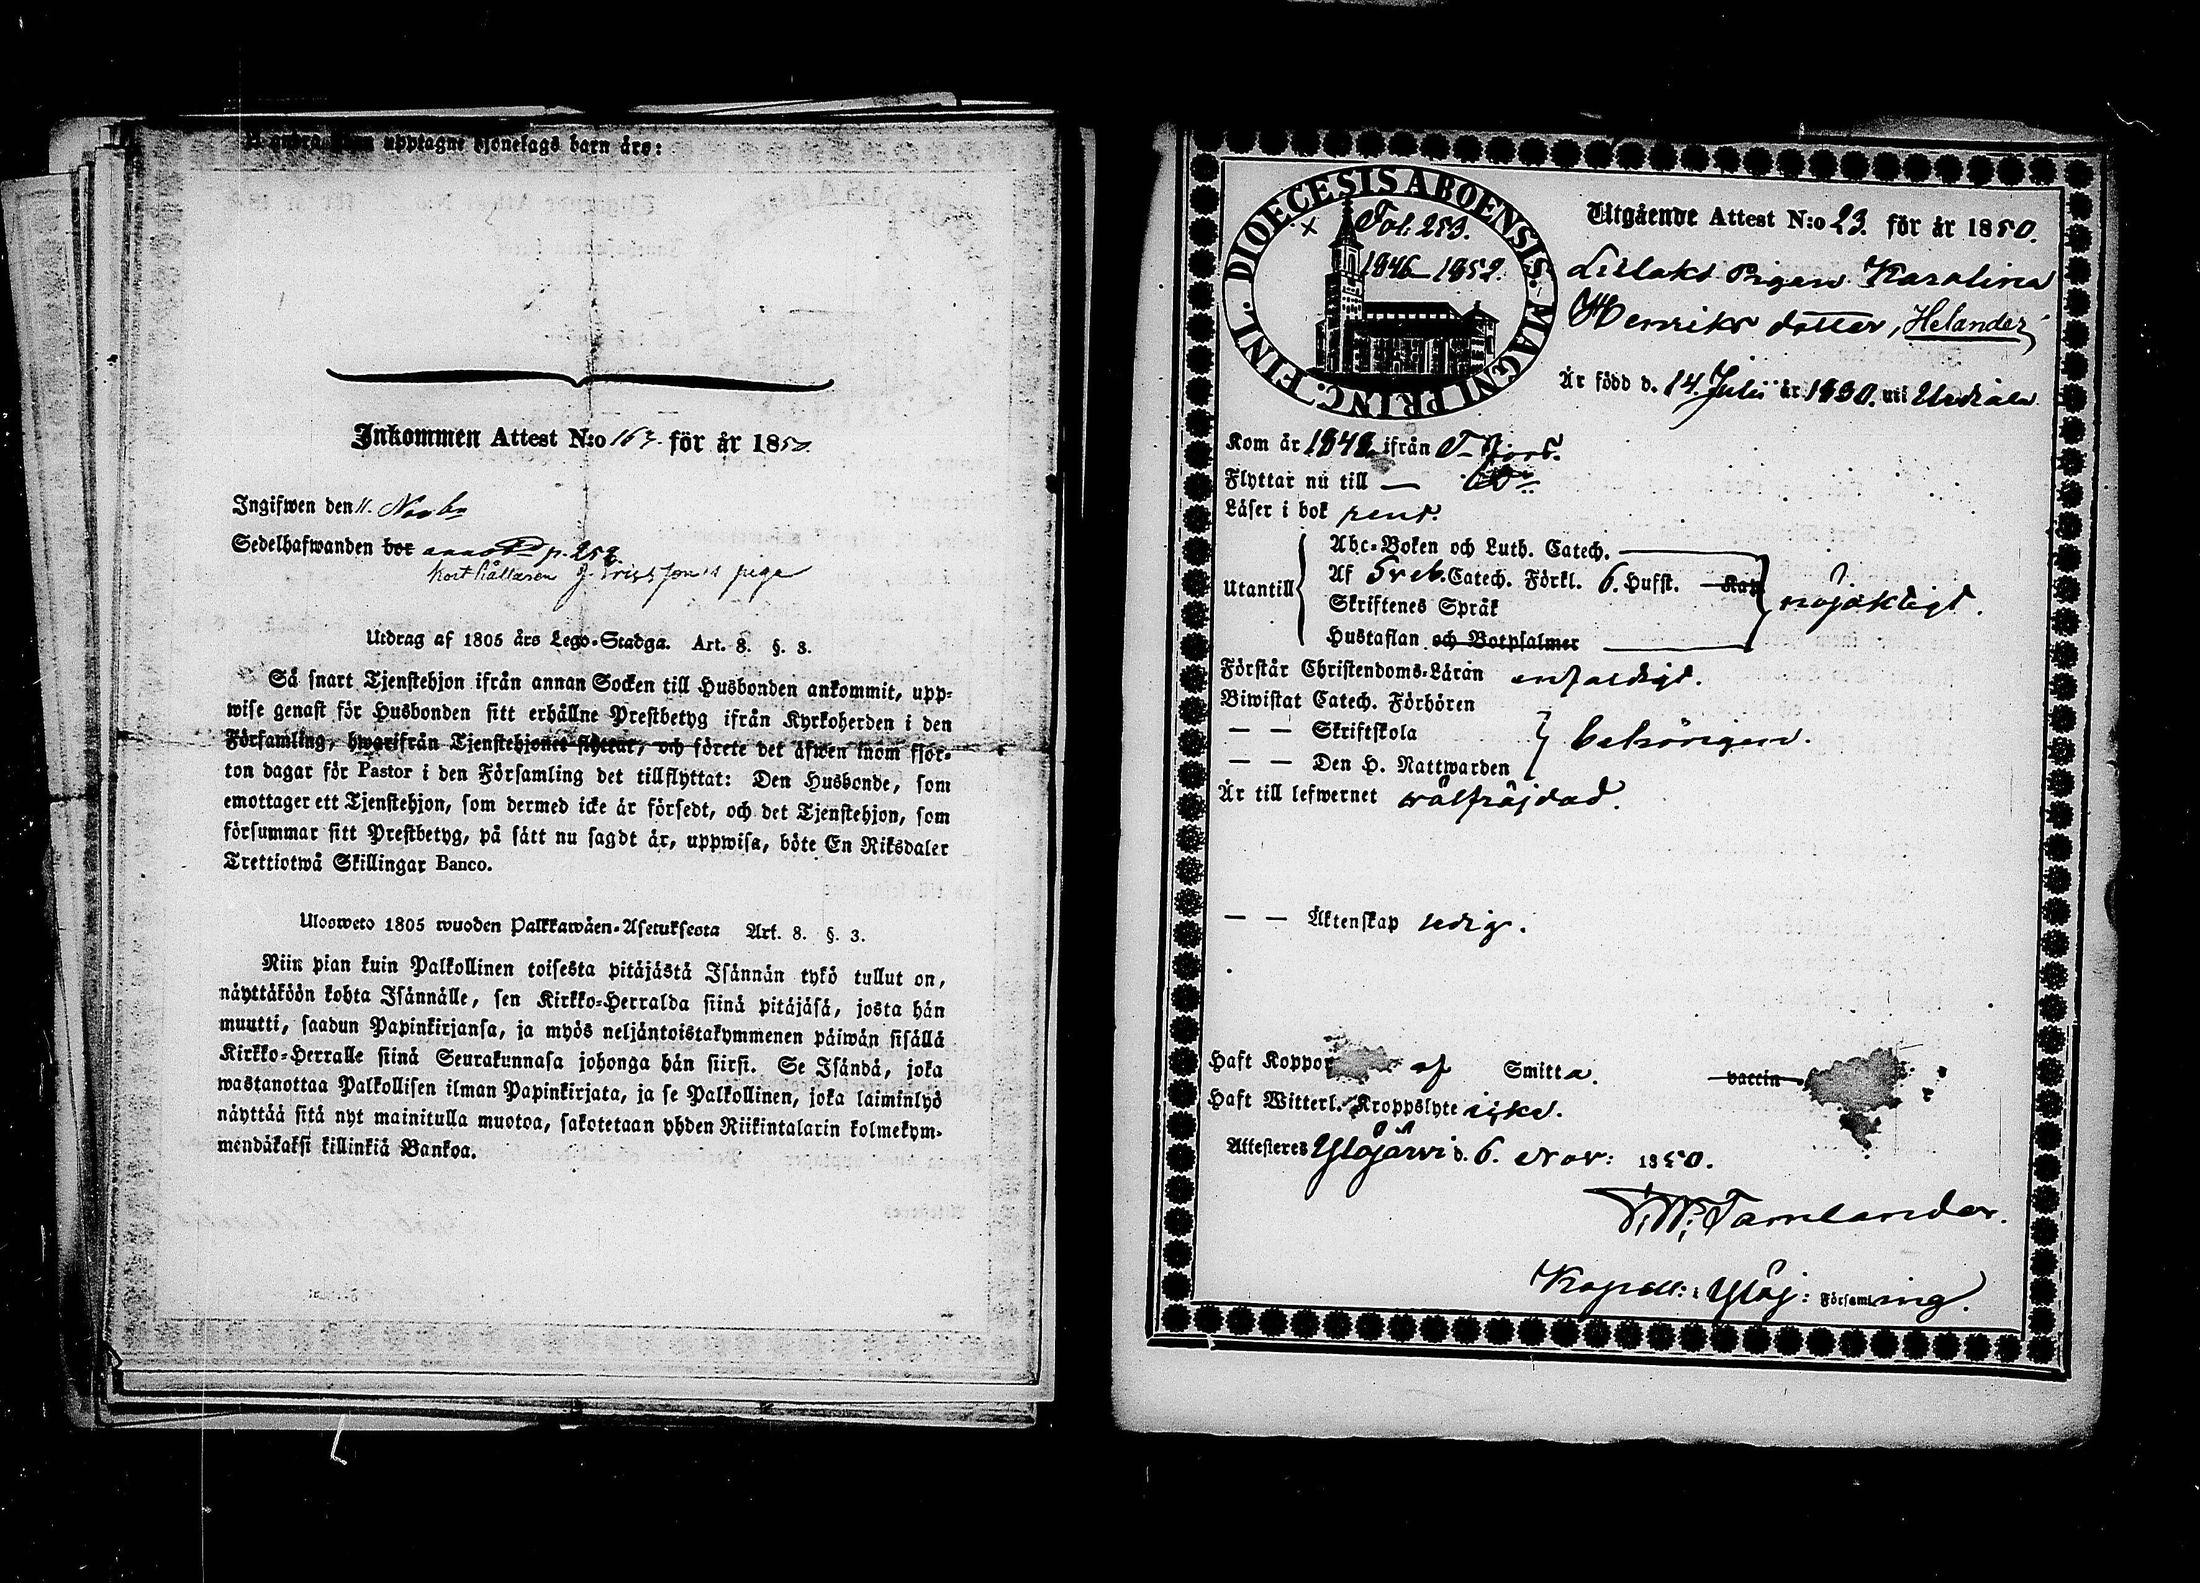 upptagne hjonelags barn äro:
Inkommen Attest N:o 163 för år 1850
Ingifwen den 11. Novbr
Sedelhafwanden bor p. 252
pige
Utdrag af 1805 års Lego-Stadga. Art. 8. §. 3.
Så snart Tjenstehjon ifrån annan Socken till Husbonden ankommit, upp-
wise genast för Husbonden sitt erhållne Prestbetyg ifrån Kyrkoherden i den
Församling, hwarifrån Tjenstehjonet flyttat, och förete det äfwen inom fjor-
ton dagar för Pastor i den Församling det tillflyttat: Den Husbonde, som
emottager ett Tjenstehjon, som dermed icke är försedt, och det Tjenstehjon, som
försummar sitt Prestbetyg, på sätt nu sagdt är, uppwisa, böte En Riksdaler
Trettiotwå Skillingar Banco.
Ulosweto 1805 wuoden Palkkawäen-Asetuksesta Art. 8. §. 3.
Niin pian kuin Palkollinen toisesta pitäjästä Isännän tykö tullut on,
näyttäköön kohta Isännälle, sen Kirkko-Herralda siinä pitäjäsä, josta hän
muutti, saadun Papinkirjansa, ja myös neljäntoistakymmenen päiwän sisällä
Kirkko-Herralle siinä Seurakunnasa johonga hän siirsi. Se Isändä, joka
wastanottaa Palkollisen ilman Papinkirjata, ja se Palkollinen, joka laiminlyö
näyttää sitä nyt mainitulla muotoa, sakotetaan yhden Riikintalarin kolmekym-
mendäkaksi killinkiä Bankoa.
DIOECESIS ABOENSIS. MAGNI PRINC. FINL.
× Fol. 253.
1846–1852.
Utgående Attest N:o 23. för år 1850.
Pigan Karolina
Henriks dotter, Helander
Är född d. 14 Julii år 1830. uti Urdiala
Kom år 1848 ifrån T-fors.
Flyttar nu till —
Läser i bok rent.
Utantill
Abc-Boken och Luth. Catech.
Af Sveb. Catech. Förkl. 6. Hufst. Kap
Skriftenes Språk
Hustaflan och Botpsalmer
nöjaktigt.
Förstår Christendoms-Läran enfaldigt.
Biwistat Catech. Förhören
— — Skriftskola
— — Den H. Nattwarden
behörigen.
Är till lefwernet wälfräjdad.
— — Äktenskap ledig.
Haft Koppor af Smitta. vaccin
Haft Witterl. Kroppslyte icke.
Attesteres Ylöjärwi d. 6. Nov: 1850.
Tamlander.
Kapell: i Ylöj: Församling.